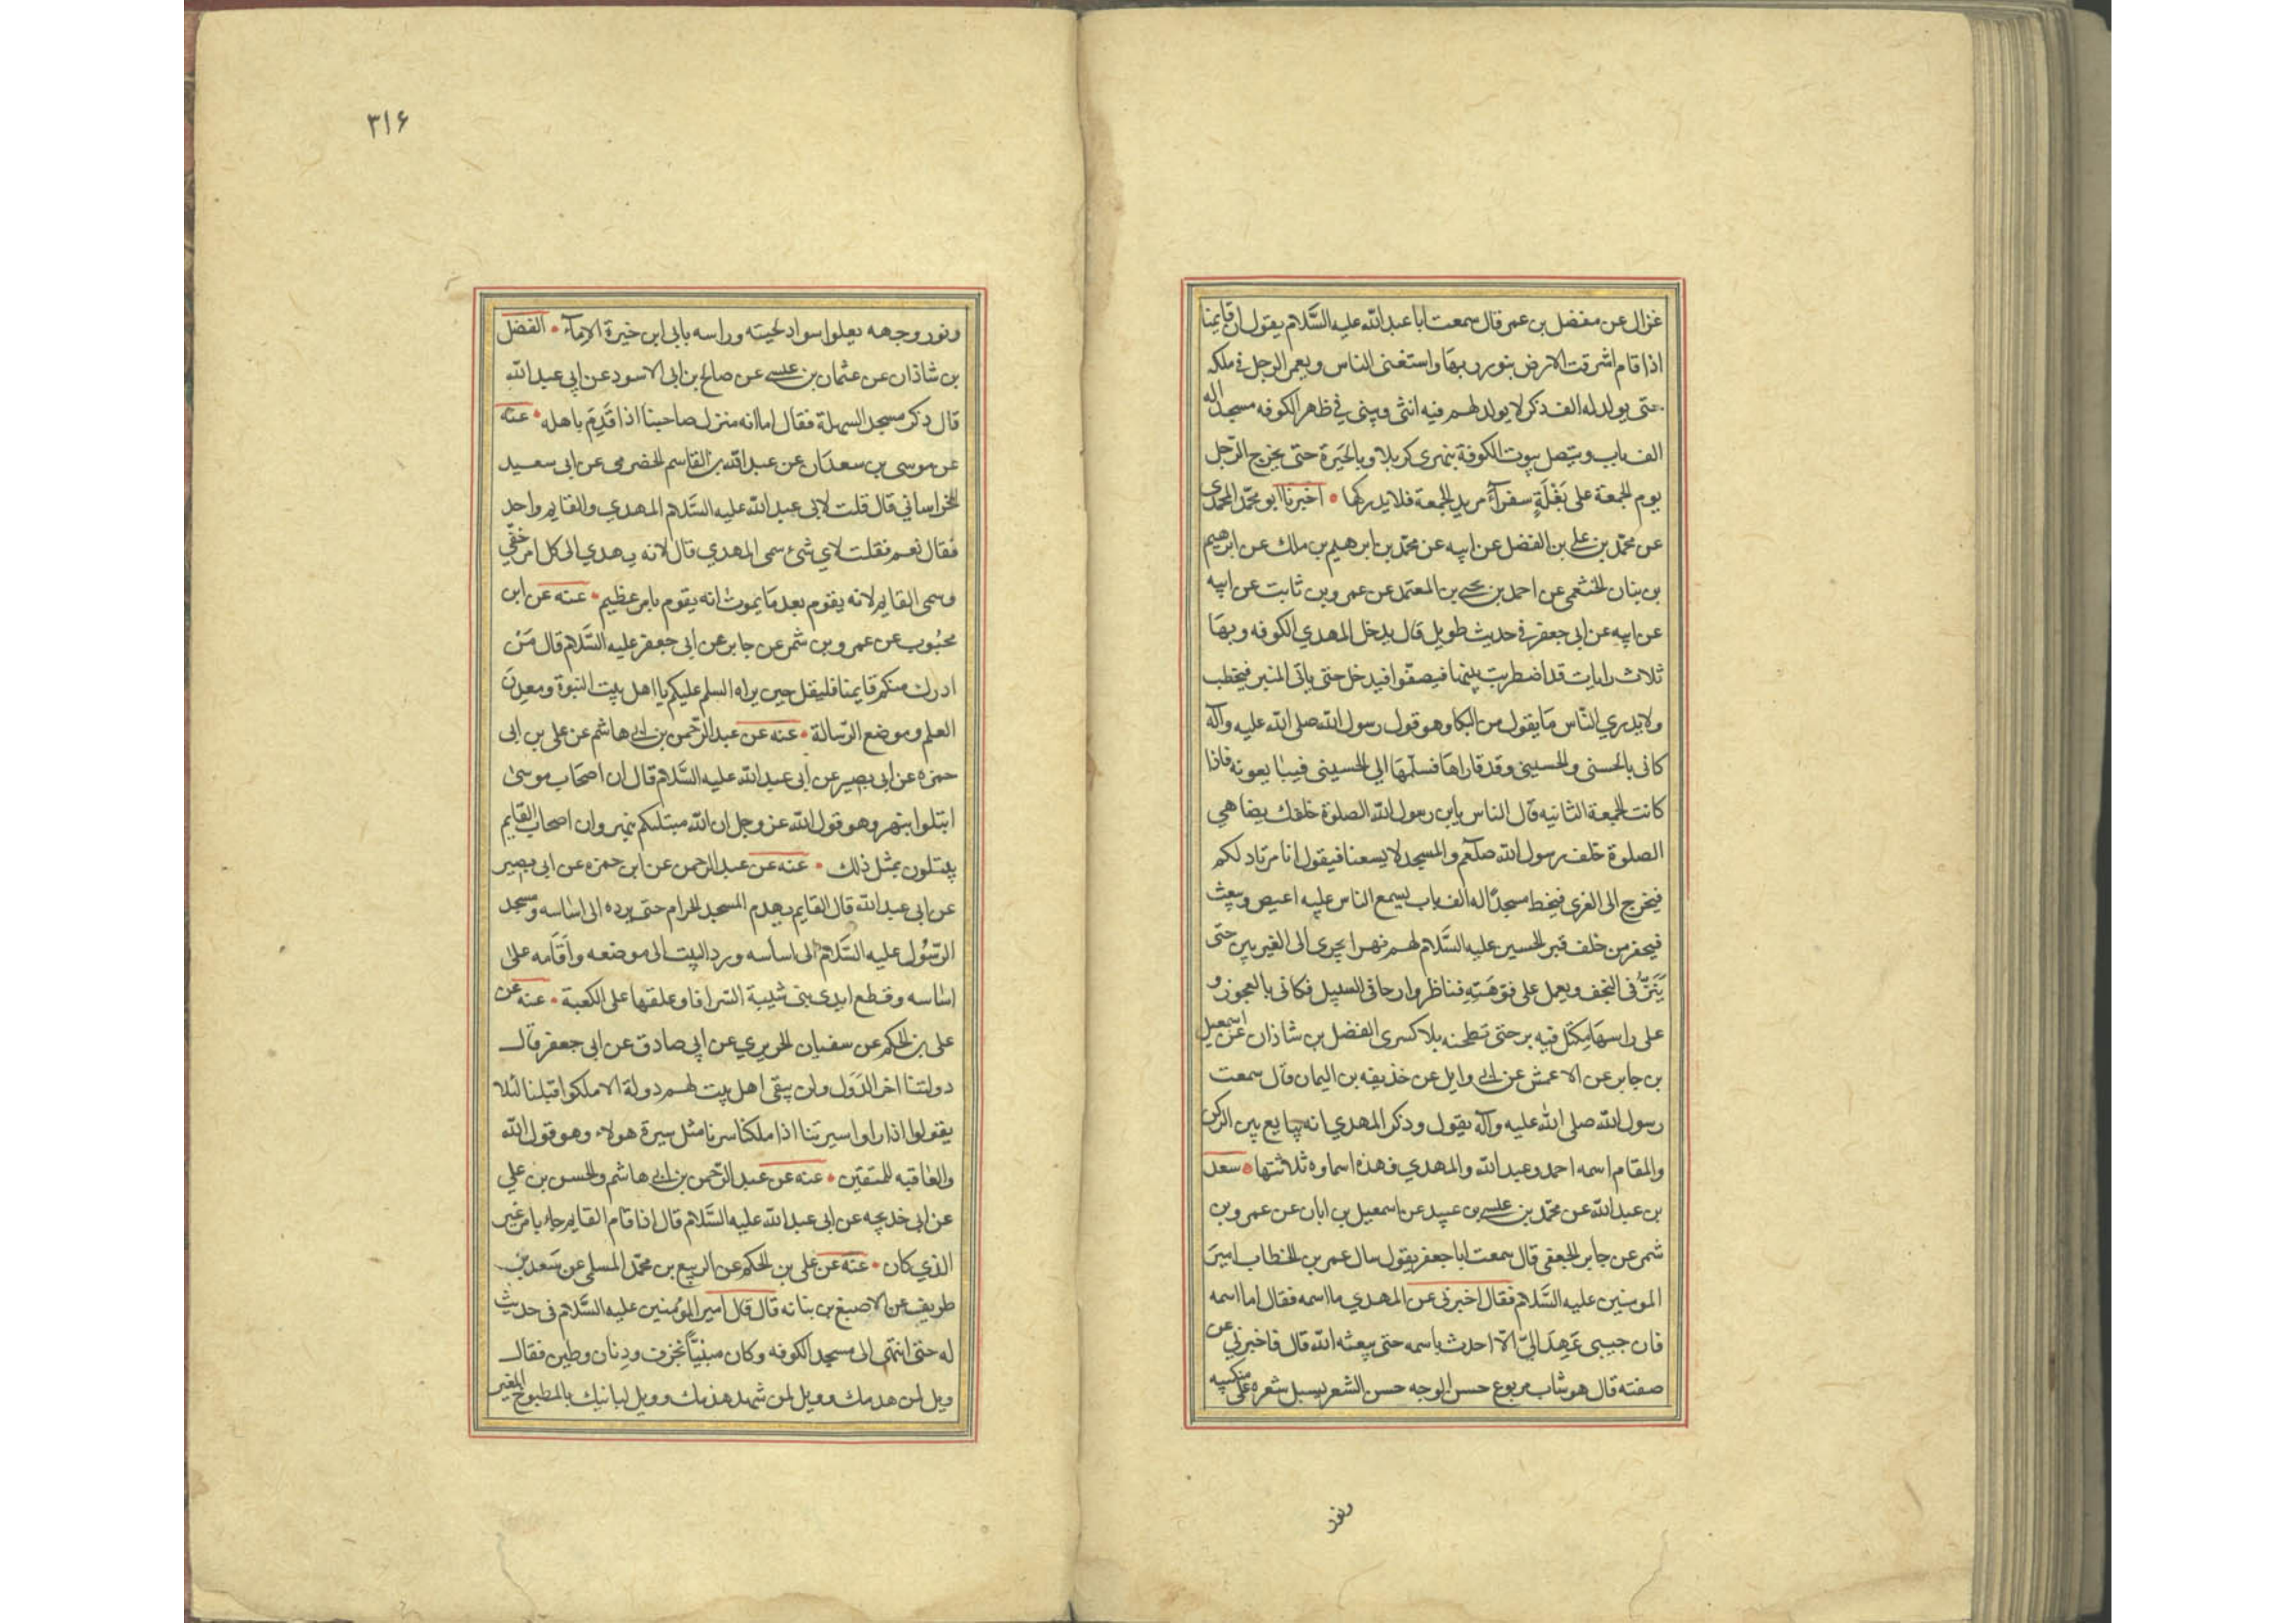 غزال عن مفضل بن عمر قال سمعت ابا عبد الله عليه السَّلام يقول ان قايمنا
اذا قام اشرقت الارض بنور ربها واستغنى الناس ويعمر الرجل في ملكه
حتى يولد له الف ذكر لا يولد لهم فيه انثى ويبنى في ظهر الكوفه مسجد اله
الف باب ويتصل بيوت الكوفة بنهرى كربلا وبالحَيرة حتى يخرج الرّجل
يوم الجمعة على بَغْلَةٍ سفرآء يريد الجمعة فلا يدركها • اخبرنا ابو محمّد المحمّدي
عن محمّد بن علي بن الفضل عن ابيه عن محمّد بن ابرهيم بن ملك عن ابرهيم
بن بنان الخثعمي عن احمد بن يحيى بن المعتمد عن عمرو بن ثابت عن ابيه
عن ابيه عن ابي جعفر في حديث طويل قال يدخل المهدي الكوفه وبها
ثلاث رايات قد اضطربت بينها فيصفّوا فيدخل حتى ياتى المنبر فيخطب
ولا يدري النّاس مَا يقول من البكا وهو قول رسول الله صلى الله عليه وآله
كانى بالحسنى والحسينى وقد قاراها فسلّمها الى الحسينى فيبايعونه فاذا
كانت الجمعة الثانيه قال الناس يابن رسول الله الصلوة خلفك يضاهي
الصلوة خلف رسول الله صلعم والمسجد لا يسعنا فيقول انا مرتاد لكم
فيخرج الى الغرى فيخط مسجدًا له الف باب يسمع الناس عليه اعيص ويبعث
فيحفر من خلف قبر الحسين عليه السَّلام لهم نهرا يجرى الى الغريين حتى
يَنَزّ فى النجف ويعمل على فوّهَتِهِ قناطر وارحا فى السبيل فكانى بالعجوز و
على راسهَا مِكتَل فيه بر حتى تطحنه بلا كسرى الفضل بن شاذان عن اسمعيل
بن جابر عن الاعمش عن ابي وايل عن خذيفه بن اليمان قال سمعت
رسول الله صلى الله عليه وآله يقول وذكر المهدي انه يبايع بين الركن
والمقام اسمه احمد وعبد الله والمهدي فهذه اسماوه ثلاثتها • سعد
بن عبد الله عن محمّد بن عيسى بن عبيد عن اسمعيل بن ابان عن عمرو بن
شمر عن جابر الجعفى قال سمعت ابا جعفر يقول سال عمر بن الخطاب اميرَ
المومنين عليه السَّلام فقال اخبرنى عن المهدي ما اسمه فقال اما اسمه
فان حبيبى عَهِدَ اليّ الّا احدث باسمه حتى يبعثه الله قال فاخبرني عن
صفته قال هو شاب مربوع حسن الوجه حسن الشعر يسيل شعره على منكبيه
ونور
٣١۶
ونور وجهه يعلوا سواد لحيته وراسه بابى ابن خيرة الاِمآء • الفضل
بن شاذان عن عثمان بن عيسى عن صالح بن ابى الاسود عن ابي عبد الله
قال ذكر مسجد السهلة فقال اما انه منزل صاحبنا اذا قَدِمَ باهله • عنه
عن موسى بن سعدَان عن عبد الله بن القاسم الحضرمى عن ابى سعيد
الخراساني قال قلت لابى عبد الله عليه السَّلام المهدي والقايم واحد
فقال نعم فقلت لاي شئ سمى المهدي قال لانه يهدي الى كل امر خفّي
وسمى القايم لانه يقوم بعد مَا يموت انه يقوم بامر عظيم • عنه عن ابن
محبُوب عن عمرو بن شمر عن جابر عن ابى جعفر عليه السَّلام قال مَنْ
ادرك منكم قايمنا فليقل حين يراه السلم عليكم يا اهل بيت النبوة ومعدنَ
العلم وموضع الرّسالة • عنه عن عبد الرّحمن بن ابي هاشم عن على بن ابى
حمزه عن ابى بصير عن ابى عبد الله عليه السَّلام قال ان اصحَاب موسىٰ
ابتلوا بنهر وهو قول الله عز وجل ان الله مبتليكم بنهر وان اصحاب القايم
يبتلون بمثل ذلك • عنه عن عبد الرحمن عن ابن حمزه عن ابى بصير
عن ابى عبد الله قال القايم يهدم المسجد الحرام حتى يرده الى اساسه ومسجد
الرّسُول عليه السَّلام الى اساسه ورد البيت الى موضعه وأقَامه على
اساسه وقطع ايدى بنى شيبة السراقا وعلقها على الكعبة • عنه عن
على بن الحكم عن سفيان الحريري عن ابي صادق عن ابى جعفر قال
دولتنا اخر الدّوَل ولن يبقى اهل بيت لهم دولة الا ملكوا قبلنا لئلا
يقولوا اذا راوا سيرتنا اذا ملكنا سرنا مثل سيرة هولاء وهو قول الله
والعاقبه للمتقين • عنه عن عبد الرّحمن بن ابي هاشم والحسن بن علي
عن ابى خديجه عن ابى عبد الله عليه السَّلام قال اذا قام القايم جاء بامر غير
الذي كان • عنه عن على بن الحكم عن الربيع بن محمّد المسلى عن سَعد بن
طريف عن الاصبغ بن بناته قال قال امير المؤمنين عليه السَّلام فى حديث
له حتى انتهى الى مسجد الكوفه وكان مبنيًّا بخزف ودِنان وطين فقال
ويل لمن هدمك وويل لمن شهد هدمك وويل لبانيك بالمطبوخ المغير